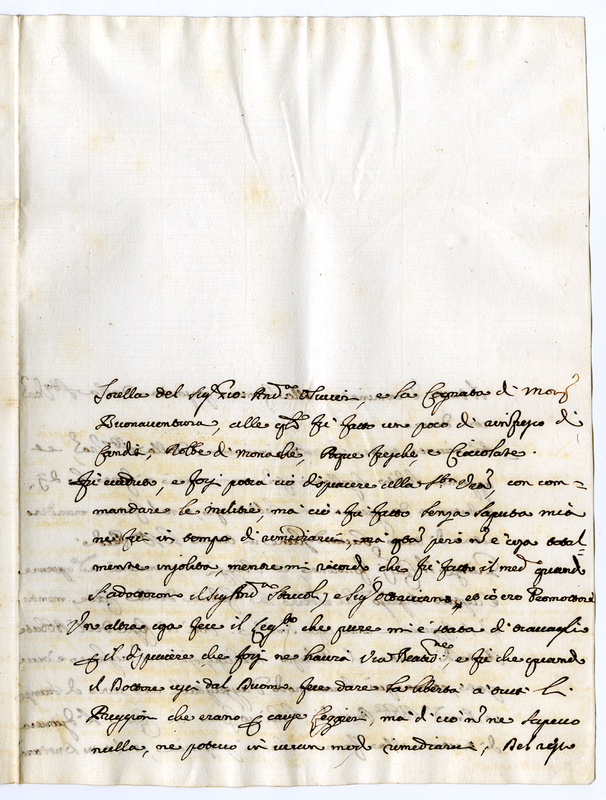 Sorella del Sig.r Co: And.a , e la Cognata di Mons.r
Buonaventura, alle q.li fù fatto un poco di rinfresco di
Cande, Robbe di monache, Acque fresche, e Cioccolate.
Fù veduto, e forsi potrà ciò dispiacere alla S.tà V.ra con com=
mandare le militie, ma ciò fù fatto senza saputa mia
ne fui in tempo di rimediarvi, mà q.sta però n.n è cosa total=
mente insolita, mentre mi ricordo che fù fatto il med.o quando
s'adottoron il Sig. And.a Staccoli, e Sig.r Ottaviano, et io ero Promottore
Un altra cosa fece il che pure mi è stata di travaglio
p il dispiacere che forsi ne haurà V.ra Beatit.ne, e fù che quando
il Dottore uscì dal Duomo fece dare la libertà a tutti li
Priggioni che erano p cause leggieri, ma di ciò n.n ne sapevo
nulla, ne potevo in verun modo rimediarvi, Del resto